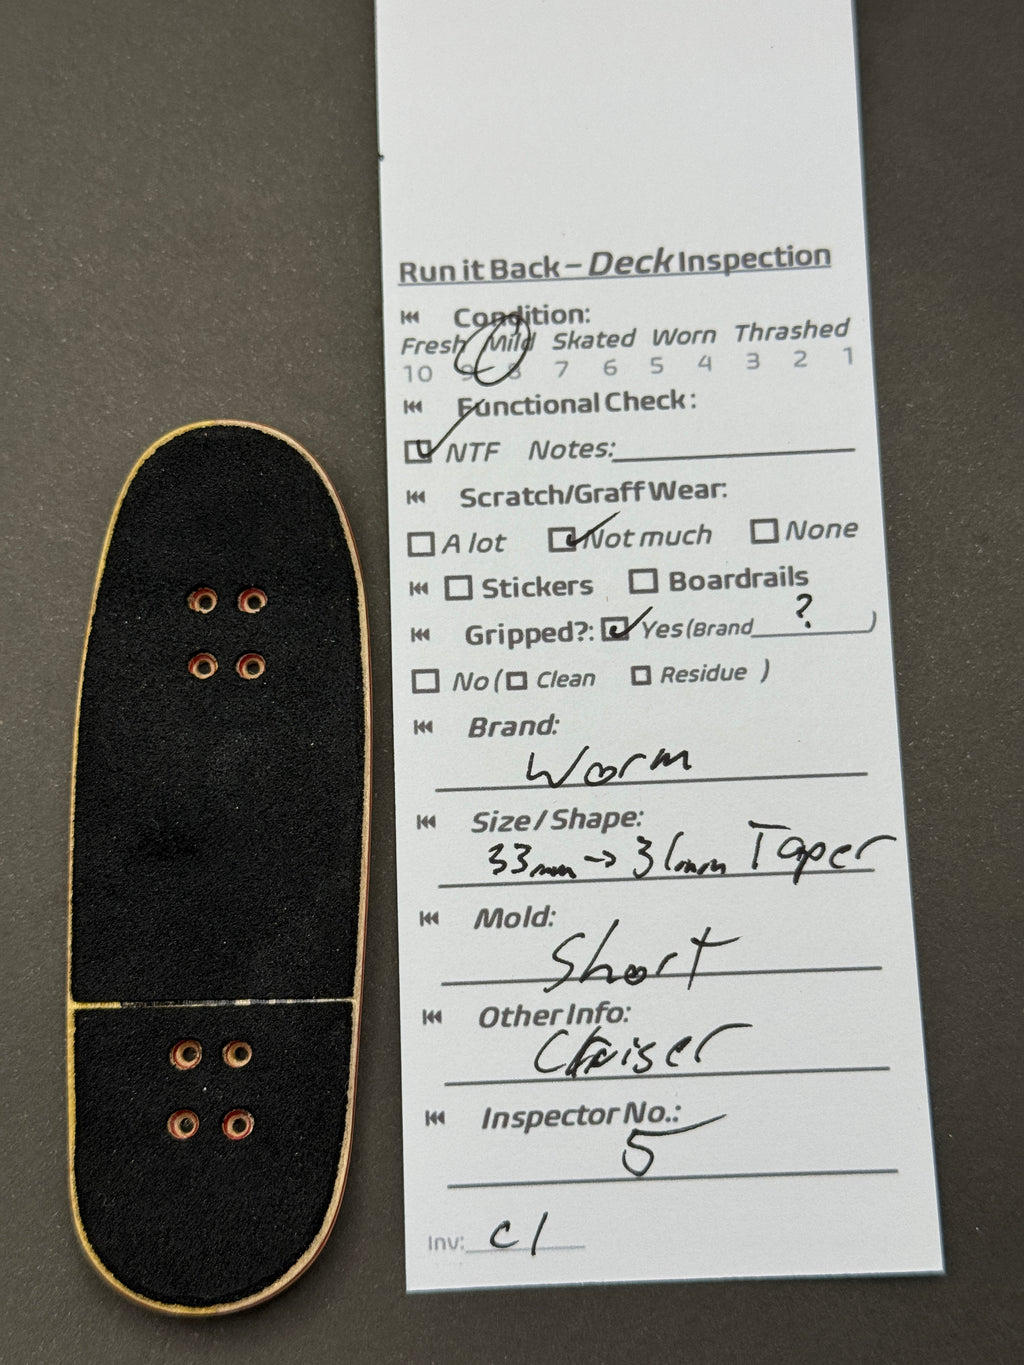 Run it Back – Deck Inspection
Condition:
Fresh Mild Skated Worn Thrashed
10 9 8 7 6 5 4 3 2 1
Functional Check:
NTF Notes:
Scratch/Graff Wear:
A lot Not much None
Stickers Boardrails
Gripped?: Yes (Brand ? )
No ( Clean Residue )
Brand:
Worm
Size / Shape:
33mm → 31mm Taper
Mold:
Short
Other Info:
Cruiser
Inspector No.:
5
Inv: C1